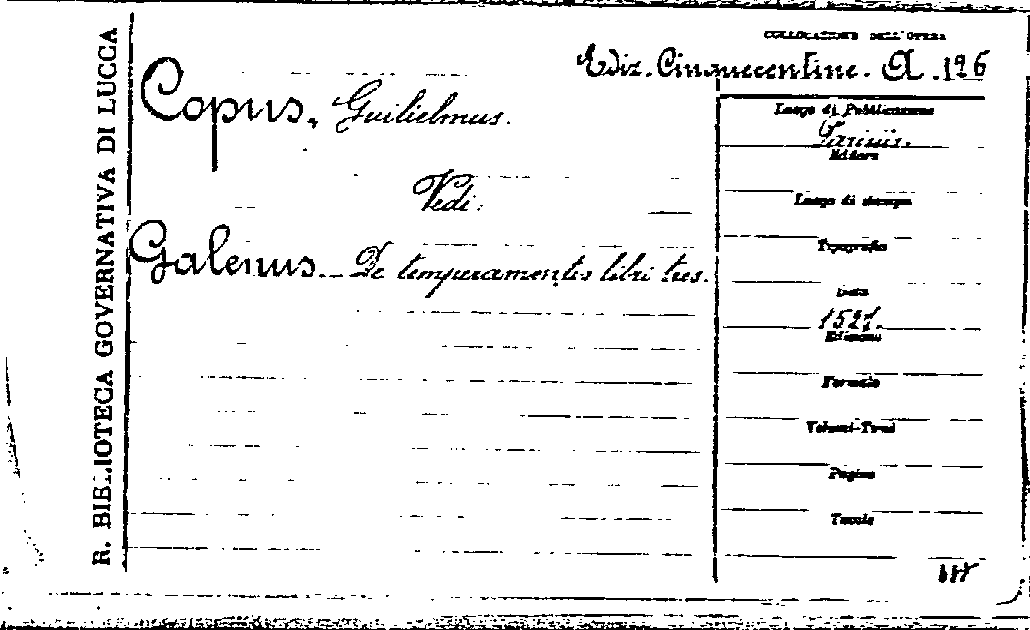 R. BIBLIOTECA GOVERNATIVA DI LUCCA
COLLOCAZIONE DELL'OPERA
Ediz. Cinquecentine. A. 126
Copus, Guilielmus.
Vedi:
Galenus. - De temperamentis libri tres.
Luogo di Pubblicazione
Parisiis.
Editore
Luogo di stampa
Tipografia
Data
1527.
Edizione
Formato
Volumi-Tomi
Pagine
Tavole